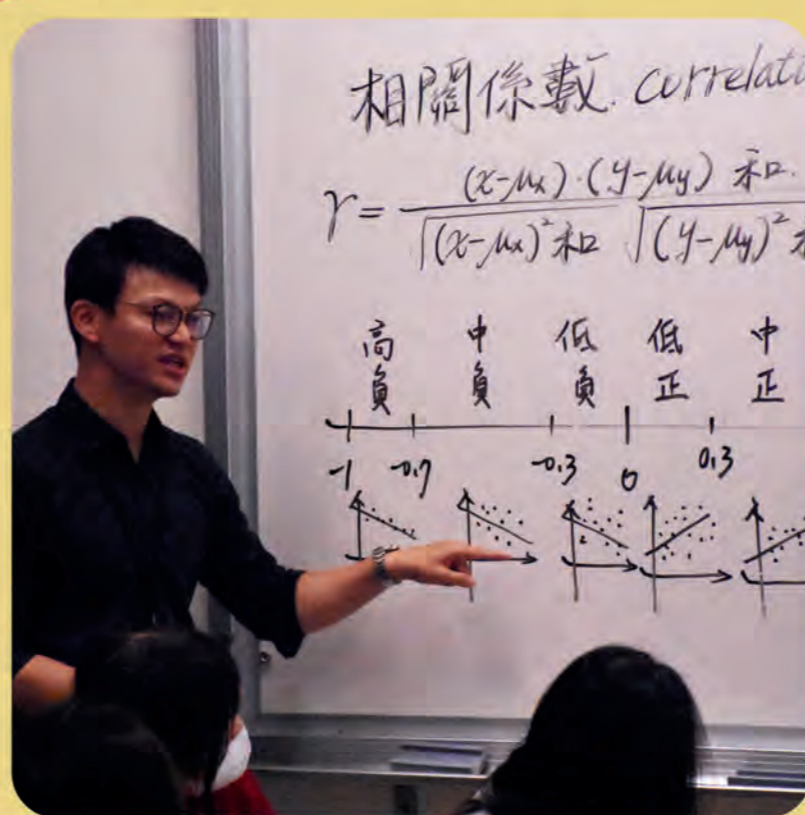 相關係數. correlati
r = (x-μx)·(y-μy) 和.
√(x-μx)² 和 √(y-μy)²
高負 中負 低負 低正 中正
-1 -0.7 -0.3 0 0.3